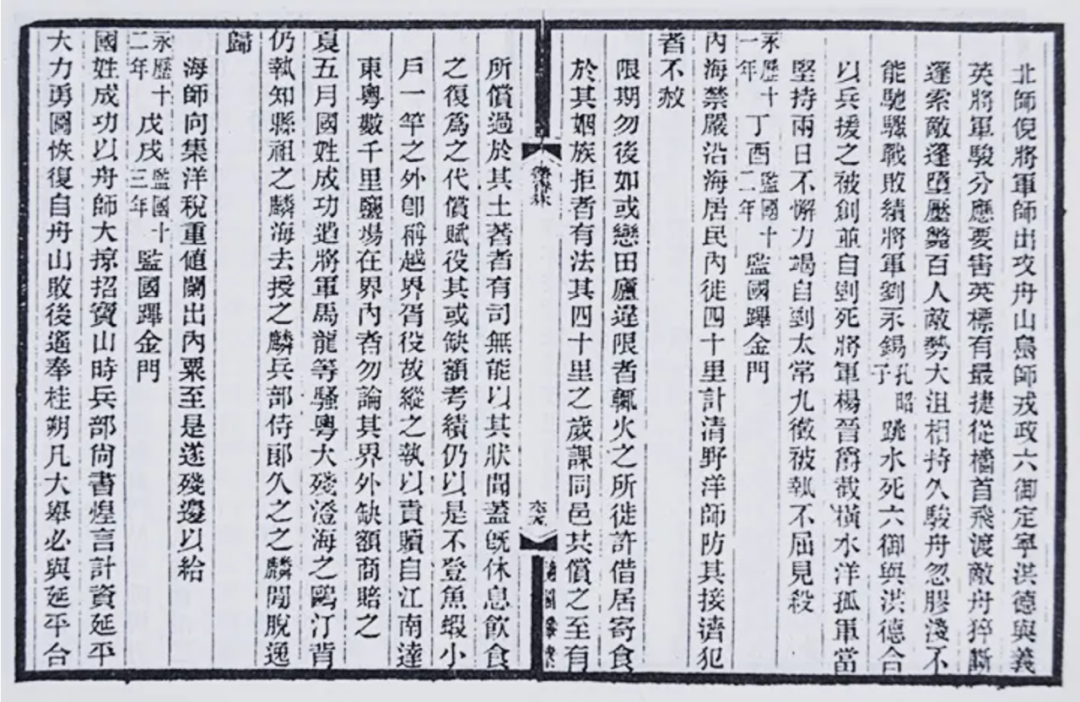 北師倪將軍師出攻舟山島師戎政六御定寧洪德與義
英將軍駿分應要害英標有最捷從檣首飛渡敵舟猝斷
蓬索敵蓬墮壓斃百人敵勢大沮相持久駿舟忽膠淺不
能馳驟戰敗績將軍劉永錫孔昭子跳水死六御與洪德合
以兵援之被創並自剄死將軍楊晉爵截橫水洋孤軍當
堅持兩日不懈力竭自剄太常九徵被執不屈見殺
永歷十一年丁酉監國十二年監國蹕金門
內海禁嚴沿海居民內徙四十里計清野洋師防其接濟犯
者不赦
限期勿後如或戀田廬違限者輒火之所徙許借居寄食
於其姻族拒者有法其四十里之歲課同邑共償之至有
所償過於其土著者有司無能以其狀聞蓋既休息飲食
之復為之代償賦役其或缺額考績仍以是不登魚蝦小
戶一竿之外卽稱越界胥役故縱之執以責贖自江南達
東粵數千里鹽場在界內者勿論其界外缺額商賠之
夏五月國姓成功遣將軍馬龍等騷粵大殘澄海之鷗汀背
仍執知縣祖之麟海去授之麟兵部侍郎久之之麟閒脫逸
歸
海師向集洋稅重値闌出內粟至是遂殘邊以給
永歷十二年戊戌監國十三年監國蹕金門
國姓成功以舟師大掠招寶山時兵部尙書煌言計資延平
大力勇圖恢復自舟山敗後適奉桂朔凡大舉必與延平台